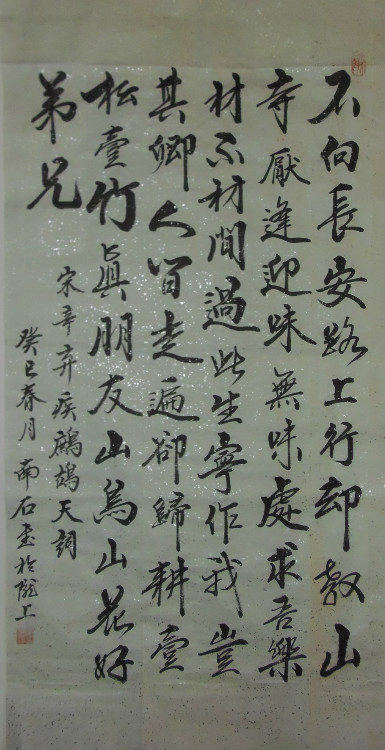 不向長安路上行却教山
寺厭逢迎味無味處求吾樂
材不材間過此生寧作我豈
其卿人間走遍卻歸耕壹
松壹竹眞朋友山鳥山花好
弟兄
宋辛弃疾鷓鴣天詞
癸巳春月南石書於隴上